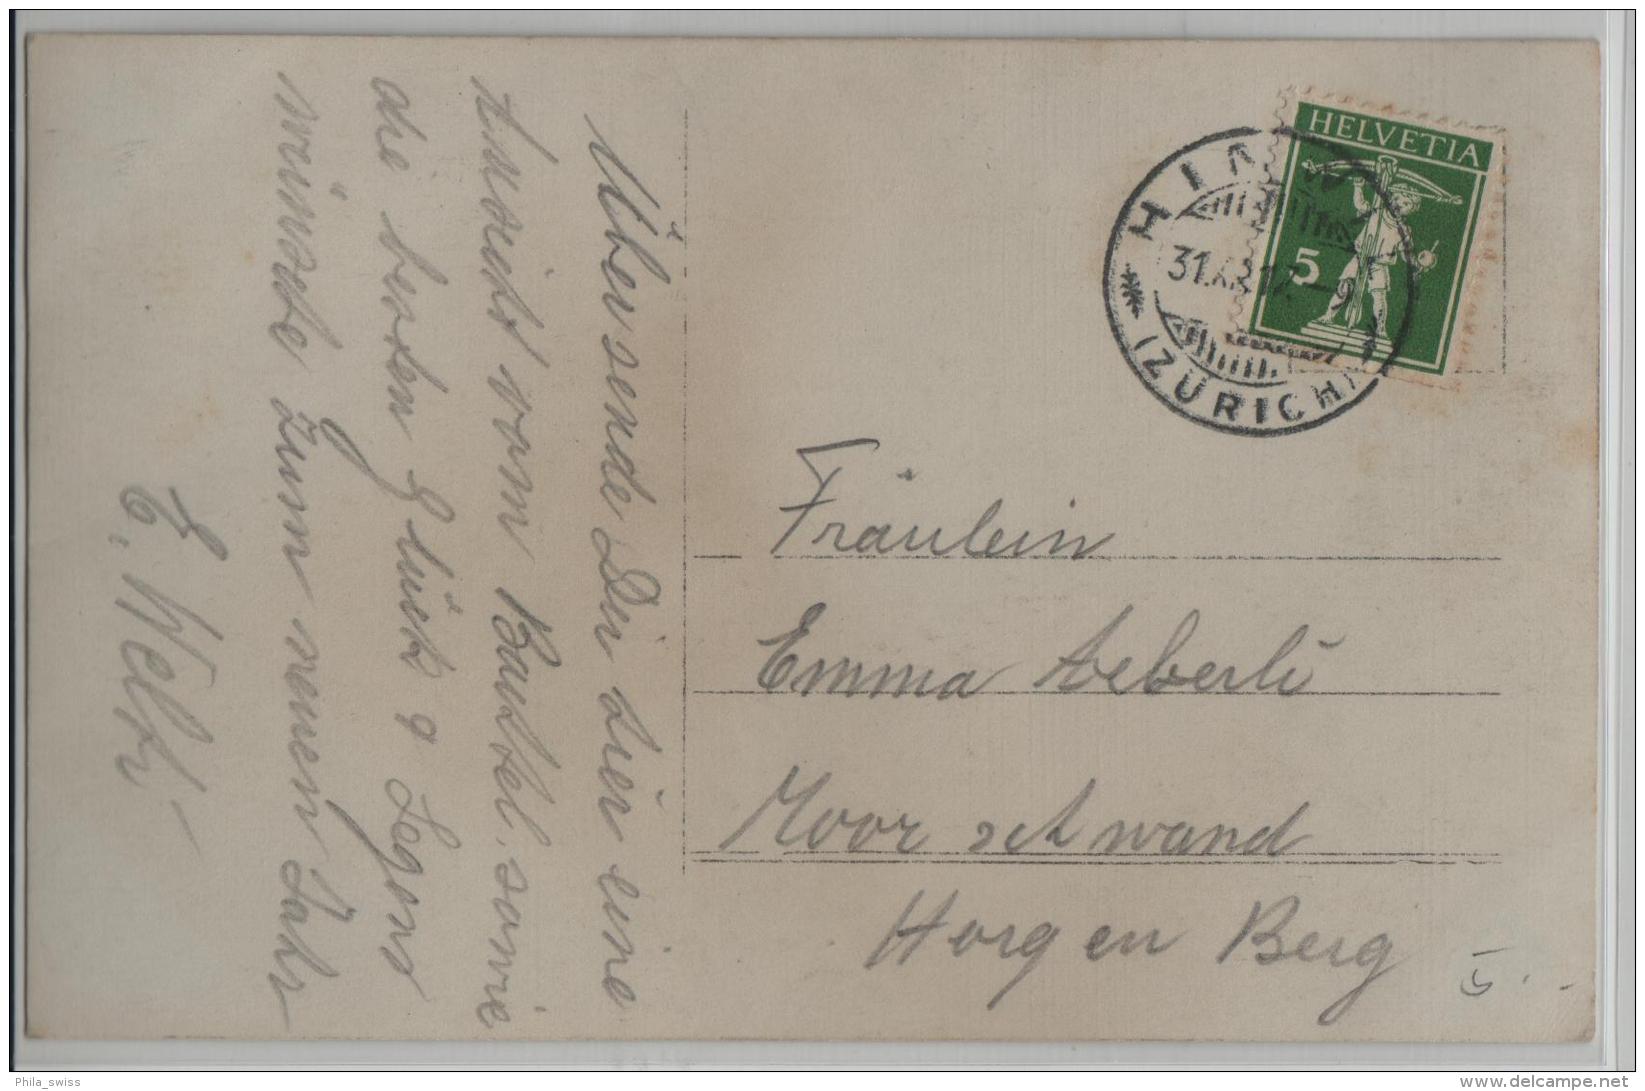 Übersende Dir hier eine
Ansicht vom Bachtel. sowie
die besten Glück & Segens
wünsche zum neuen Jahr
E. Welti
HELVETIA
5
HINWIL
31.XII.17.-9
(ZÜRICH)
Fräulein
Emma Aeberli
Moorschwand
Horgen Berg
Phila_swiss
www.delcampe.net